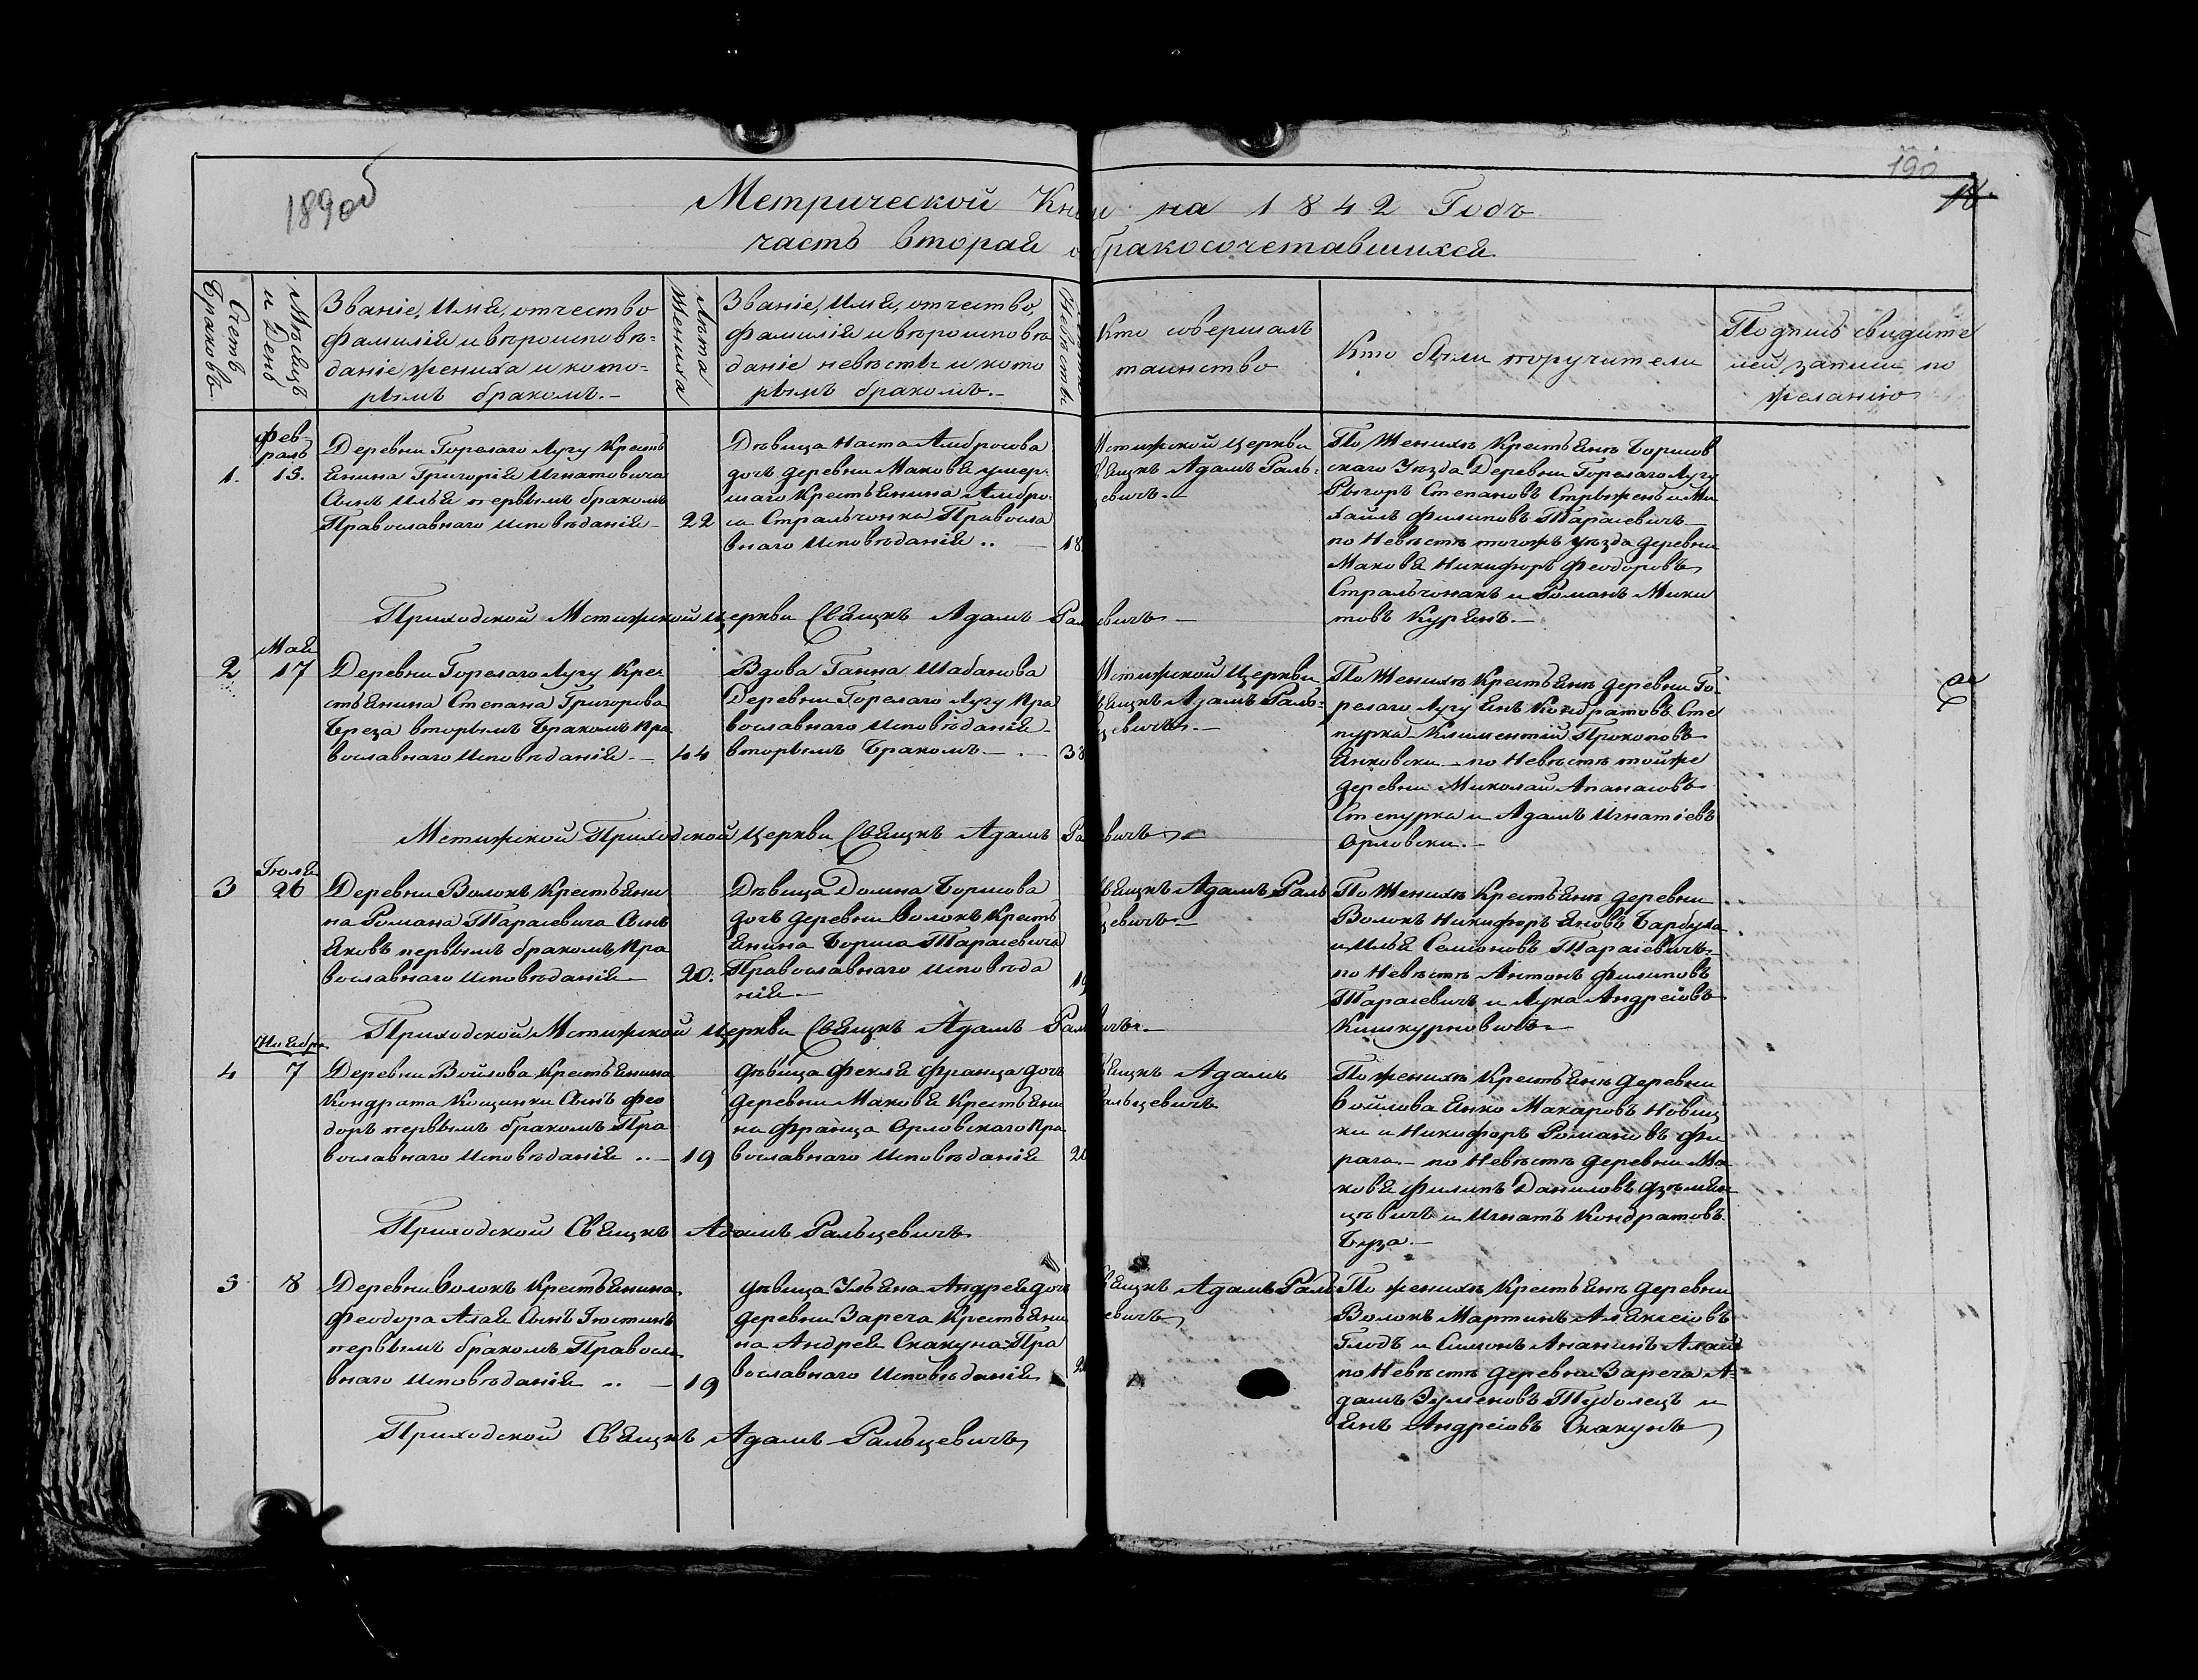 189об
190
Метрической Книги на 1842 Годъ
часть вторая о бракосочетавшихся
Счетъ Браковъ
Мѣсяцъ и День
Званіе, Имя, отчество
фамилія и вѣроисповѣ=
даніе жениха и кото=
рымъ бракомъ.-
Лѣта Жениха
Званіе, Имя, отчество,
фамилія и вѣроисповѣ
даніе невѣсты и кото
рымъ бракомъ.-
Невѣсты
Кто совершалъ
таинство
Кто были поручители
Подпись свидите
лей записи по
желанію
1.
Фев-
раль
15.
Деревни Горелаго Лугу Кресть
янина Григорія Игнатовича
Сынъ Илья первымъ бракомъ
Православнаго исповѣданія
22
Дѣвица Наста Амбросова
дочь деревни Маковя умер-
шаго Крестьянина Амбро-
са Стральчонка Правосла
внаго Исповѣданія ..
18.
Мстижской Церкви
Адамъ Раль=
цевичъ.-
По Женихѣ Крестьянъ Борисов
скаго Уѣзда Деревни Горелаго Лугу
Рыгоръ Степановъ Стрыжень и Ми
хаилъ Филиповъ Тарасевичъ
по Невѣстѣ тогожъ уѣзда деревни
Маковя Никифоръ Феодоровъ
Стральчонакъ и Романъ Мики
товъ Курянъ.-
Приходской Мстижской церкви Свящкъ Адамъ Ральцевичъ
2
Мая
17
Деревни Горелаго Лугу Кре-
стьянина Степана Григорова
Береза вторымъ Бракомъ Пра
вославнаго Исповѣданія.-
44
Вдова Ганна Шабанова
Деревни Горелаго Лугу Пра
вославнаго Исповѣданія
вторымъ Бракомъ
38
Мстижской Церкви
Адамъ Раль=
цевичъ.-
По Женихѣ Крестьянъ деревни Го-
релаго Лугу Янъ Кондратовъ Сте
пурка Климентій Прокоповъ
Янковски по Невѣстѣ тойже
деревни Миколай Апанасовъ
Степурка и Адамъ Игнатіевъ
Орловски.-
Мстижской Приходской Церкви Свящкъ Адамъ Ральцевичъ
3
Іюля
26
Деревни Волокъ Крестьяни
на Романа Тарасевича Сынъ
Яковъ первымъ бракомъ Пра
вославнаго Исповѣданія
20.
Дѣвица Домна Борисова
дочь деревни Волокъ Кресть
янина Бориса Тарасевича
Православнаго Исповѣда
нія.-
19
Адамъ Раль
цевичъ
По Женихѣ Крестьянъ деревни
Волокъ Никифоръ Яковъ Барбуха
и Илья Семіоновъ Тарасевичъ
по Невѣстѣ Антонъ Филиповъ
Тарасевичъ и Лука Андреіовъ
Кишкурновичъ
Приходской Мстижской церкви Свящкъ Адамъ Ральцевичъ
4
Ноября
7
Деревни Войлова Крестьянина
Кондрата Кощинки Сынъ Фео
доръ первымъ бракомъ Пра
вославнаго Исповѣданія ..
19
дѣвица Фекля Франца дочь
деревни Маковя Крестьяни
на Франца Орловскаго Пра
вославнаго Исповѣданія
20
Адамъ
Ральцевичъ
По женихѣ Крестьянъ деревни
Войлова Янко Макаровъ Новиц
ки и Никифоръ Романовъ Фи
рага по Невѣстѣ деревни Ма
ковя Филипъ Даниловъ
и Игнатъ Кондратовъ
Буза.-
Приходской Свящкъ Адамъ Ральцевичъ
5
8
Деревни Волокъ Крестьянина
Феодора Алая Сынъ Іюстинъ
первымъ бракомъ Правосла
внаго Исповѣданія ..
19
дѣвица Ульяна Андрея дочь
деревни Зареча Крестьяни
на Андрея Скакуна Пра
вославнаго Исповѣданія
Адамъ Раль
цевичъ
По женихѣ Крестьянъ деревни
Волокъ Мартинъ Аляксіовъ
Глодъ и Симонъ Ананинъ Алай
по Невѣстѣ деревни Зареча А-
дамъ Туболецъ и
Янъ Андреіовъ Скакунъ
Приходской Свящкъ Адамъ Ральцевичъ